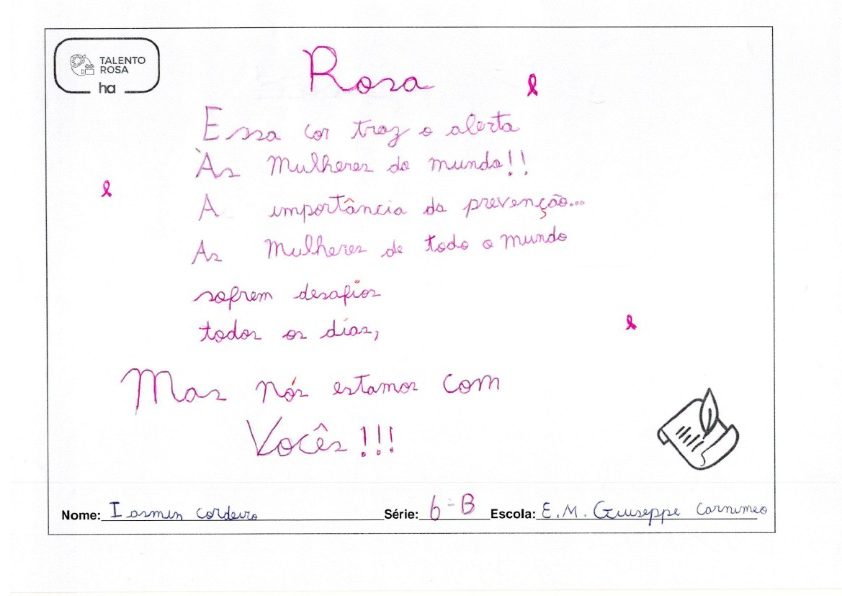 TALENTO
ROSA
ha
Rosa
Essa cor traz o alerta
Às Mulheres do mundo!!
A importância da prevenção...
As Mulheres de todo o mundo
sofrem desafios
todos os dias,
Mas nós estamos com
Vocês!!!
Nome: Iasmin Cordeiro Série: 6º B Escola: E.M. Giuseppe Carnimeo